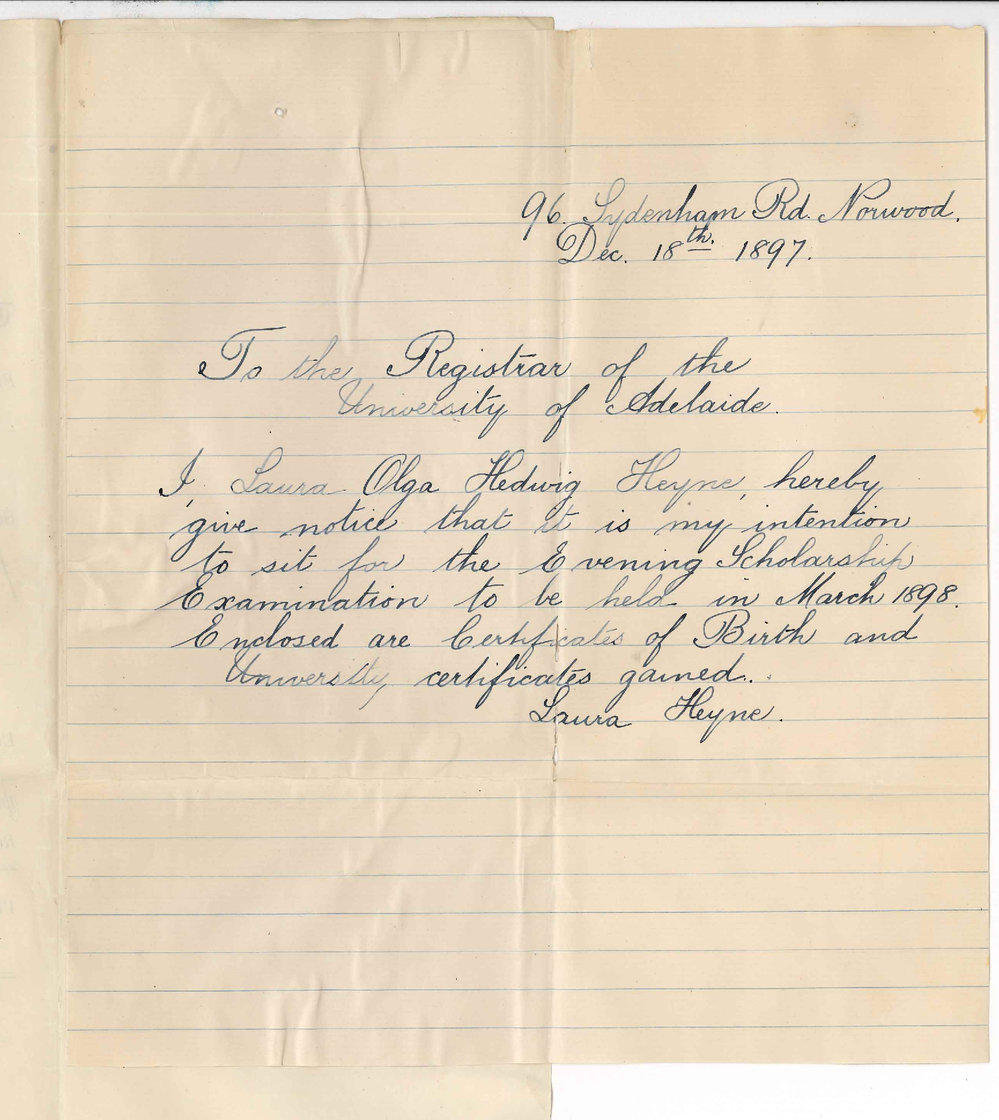 96. Sydenham Rd. Norwood.
Dec. 18th. 1897.
To the Registrar of the
University of Adelaide.
I, Laura Olga Hedwig Heyne, hereby
give notice that it is my intention
to sit for the Evening Scholarship
Examination to be held in March 1898.
Enclosed are Certificates of Birth and
University certificates gained.
Laura Heyne.